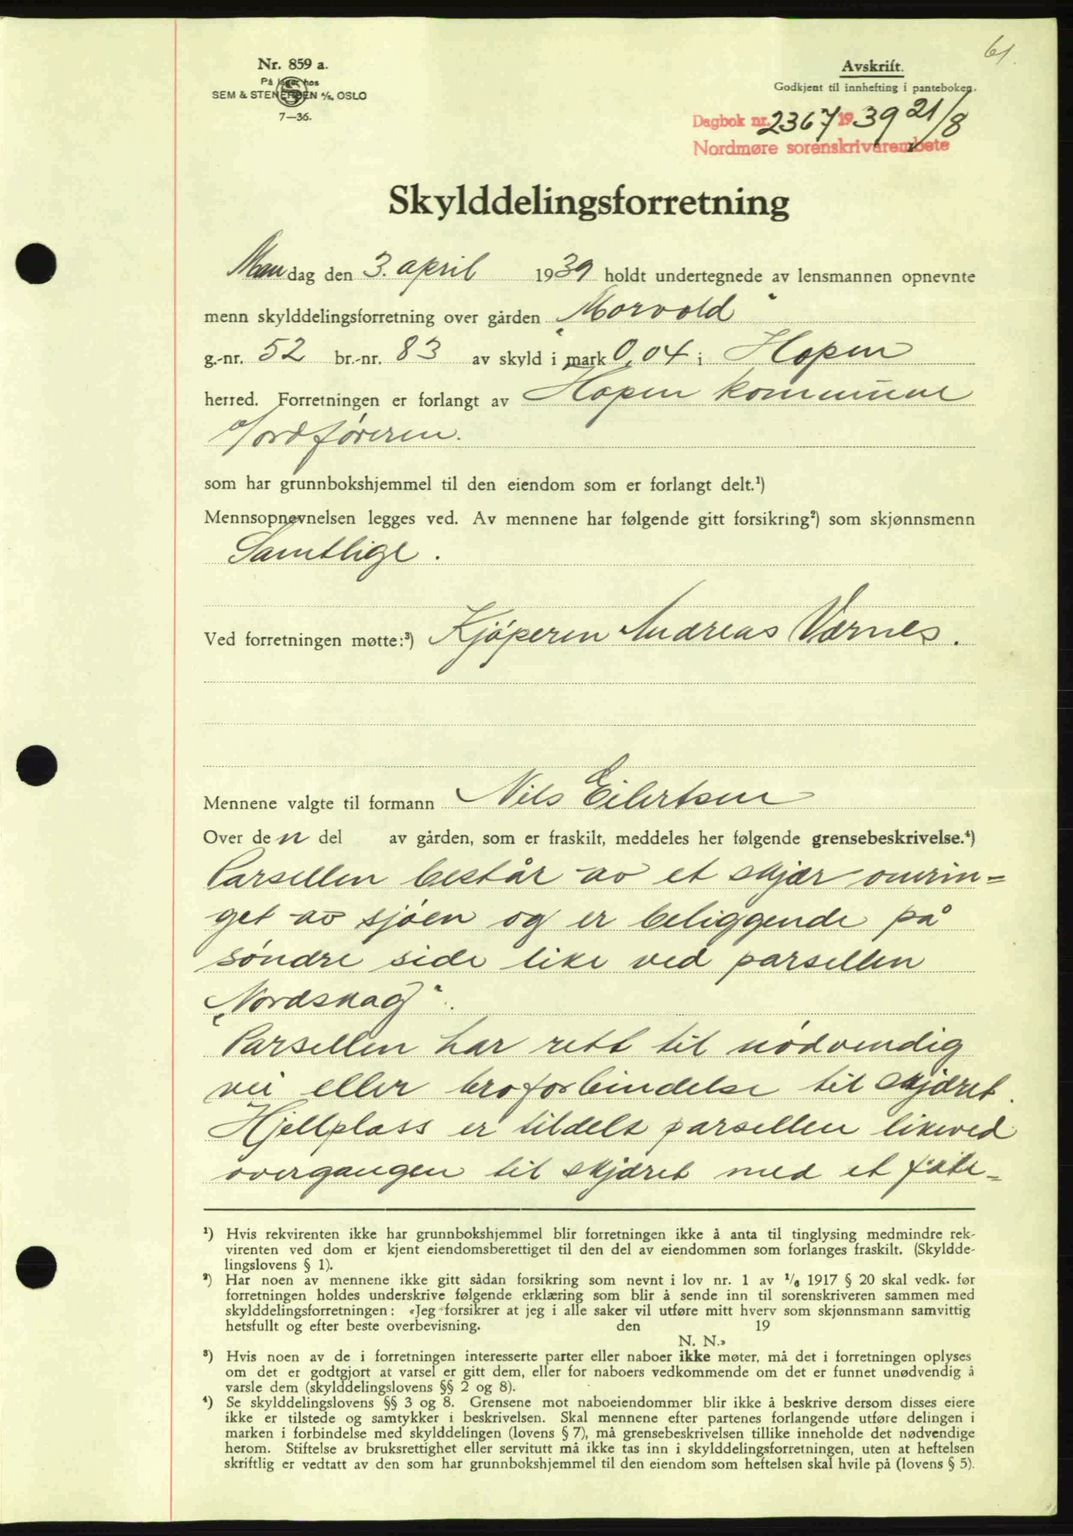 61.
Nr. 859 a.
På lager hos
SEM & STENERSEN A/S, OSLO
7—36.
Avskrift.
Godkjent til innhefting i panteboken.
Dagbok nr. 2367 1939 21/8
Nordmøre sorenskriverembete
Skylddelingsforretning
Mandag den 3. april 1939 holdt undertegnede av lensmannen opnevnte
menn skylddelingsforretning over gården „Morvold"
g.-nr. 52 br.-nr. 83 av skyld i mark 0,04 i Hopen
herred. Forretningen er forlangt av Hopen kommune
v/ordføreren.
som har grunnbokshjemmel til den eiendom som er forlangt delt.¹)
Mennsopnevnelsen legges ved. Av mennene har følgende gitt forsikring²) som skjønnsmenn
Samtlige.
Ved forretningen møtte:³) Kjøperen Andreas Værnes.
Mennene valgte til formann Nils Eilertsen
Over den del av gården, som er fraskilt, meddeles her følgende grensebeskrivelse.⁴)
Parsellen består av et skjær omrin=
get av sjøen og er beliggende på
søndre side like ved parsellen
„Nordskag".
Parsellen har rett til nødvendig
vei eller broforbindelse til skjæret.
Hjellplass er tildelt parsellen likeved
overgangen til skjæret med et
¹) Hvis rekvirenten ikke har grunnbokshjemmel blir forretningen ikke å anta til tinglysing medmindre rek-
virenten ved dom er kjent eiendomsberettiget til den del av eiendommen som forlanges fraskilt. (Skyldde-
lingslovens § 1).
²) Har noen av mennene ikke gitt sådan forsikring som nevnt i lov nr. 1 av ¹/₆ 1917 § 20 skal vedk. før
forretningen holdes underskrive følgende erklæring som blir å sende inn til sorenskriveren sammen med
skylddelingsforretningen: «Jeg forsikrer at jeg i alle saker vil utføre mitt hverv som skjønnsmann samvittig
hetsfullt og efter beste overbevisning. den 19
N. N.»
³) Hvis noen av de i forretningen interesserte parter eller naboer ikke møter, må det i forretningen oplyses
om det er godtgjort at varsel er gitt dem, eller for naboers vedkommende om det er funnet unødvendig å
varsle dem (skylddelingslovens §§ 2 og 8).
⁴) Se skylddelingslovens §§ 3 og 8. Grensene mot naboeiendommer blir ikke å beskrive dersom disses eiere
ikke er tilstede og samtykker i beskrivelsen. Skal mennene efter partenes forlangende utføre delingen i
marken i forbindelse med skylddelingen (lovens § 7), må grensebeskrivelsen tillike inneholde det nødvendige
herom. Stiftelse av bruksrettighet eller servitutt må ikke tas inn i skylddelingsforretningen, uten at heftelsen
skriftlig er vedtatt av den som har grunnbokshjemmel til den eiendom som heftelsen skal hvile på (lovens § 5).